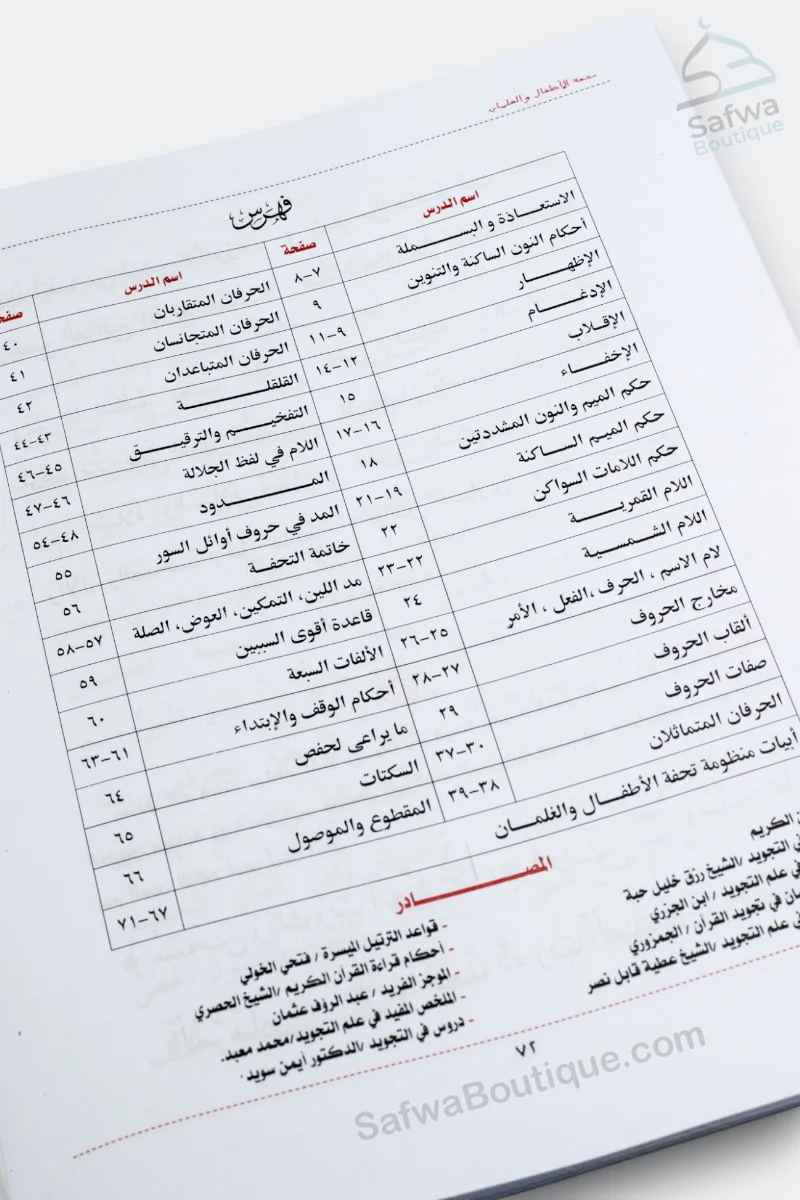 تحفة الأطفال والغلمان
Safwa
Boutique
فهرس
اسم الدرس صفحة اسم الدرس
الاستعـاذة و البسـملة ٧-٨ الحرفان المتقاربان ٤٠
أحكام النون الساكنة والتنوين ٩ الحرفان المتجانسان ٤١
الإظهـار ٩-١١ الحرفان المتباعدان ٤٢
الإدغـام ١٢-١٤ القلقلـة ٤٣-٤٤
الإقـلاب ١٥ التفخيـم والترقيـق ٤٥-٤٦
الإخفـاء ١٦-١٧ اللام في لفظ الجلالة ٤٦-٤٧
حكم الميم والنون المشددتين ١٨ المـدود ٤٨-٥٤
حكم الميـم السـاكنة ١٩-٢١ المد في حروف أوائل السور ٥٥
حكم اللامات السواكن ٢٢ خاتمة التحفـة ٥٦
اللام القمريـة ٢٢-٢٣ مد اللين، التمكين، العوض، الصلة ٥٧-٥٨
اللام الشمـسية ٢٤ قاعدة أقوى السببين ٥٩
لام الاسم ، الحرف ،الفعل ، الأمر ٢٥-٢٦ الألفات السبعة ٦٠
مخارج الحروف ٢٧-٢٨ أحكام الوقف والإبتداء ٦١-٦٣
ألقاب الحروف ٢٩ ما يراعى لحفص ٦٤
صفات الحروف ٣٠-٣٧ السكتات ٦٥
الحرفان المتماثلان ٣٨-٣٩ المقطوع والموصول ٦٦
أبيات منظومة تحفة الأطفـال والغلمـان ٦٧-٧١
المصـادر
الكريم
التجويد /الشيخ رزق خليل حبة
علم التجويد / ابن الجزري
في تجويد القرآن / الجمزوري
علم التجويد /الشيخ عطية قابل نصر
- قواعد الترتيل الميسرة / فتحي الخولي
- أحكام قراءة القرآن الكريم /الشيخ الحصري
- الموجز الفريد / عبد الرؤف عثمان
- الملخص المفيد في علم التجويد/محمد معبد.
- دروس في التجويد /الدكتور أيمن سويد.
٧٢
SafwaBoutique.com